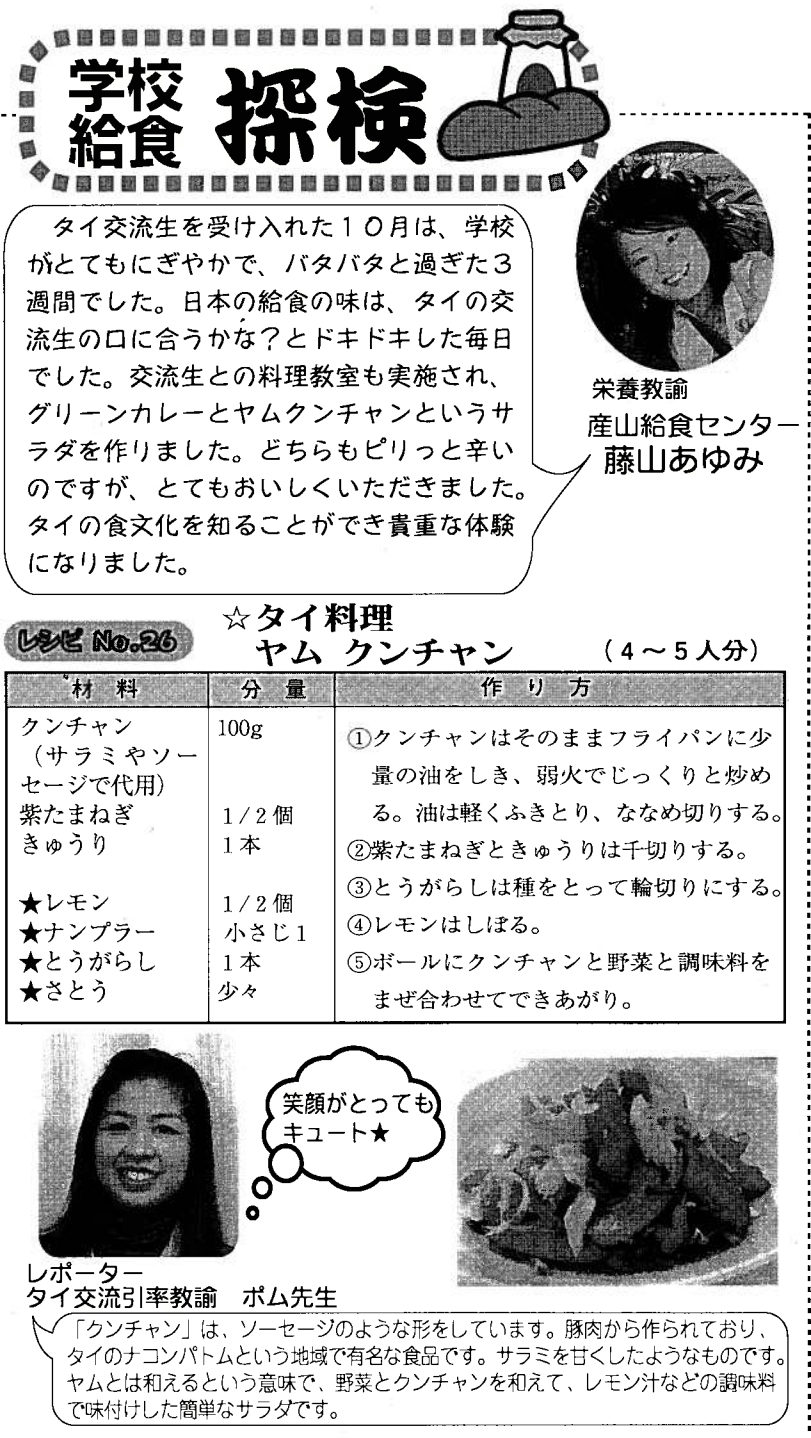 学校
給食
探検
タイ交流生を受け入れた１０月は、学校
がとてもにぎやかで、バタバタと過ぎた３
週間でした。日本の給食の味は、タイの交
流生の口に合うかな？とドキドキした毎日
でした。交流生との料理教室も実施され、
グリーンカレーとヤムクンチャンというサ
ラダを作りました。どちらもピリっと辛い
のですが、とてもおいしくいただきました。
タイの食文化を知ることができ貴重な体験
になりました。
栄養教諭
産山給食センター
藤山あゆみ
レシピ No.26
☆タイ料理
ヤム クンチャン （４～５人分）
材 料 分 量 作 り 方
クンチャン 100g
（サラミやソー
セージで代用）
紫たまねぎ 1/2個
きゅうり 1本
★レモン 1/2個
★ナンプラー 小さじ1
★とうがらし 1本
★さとう 少々
①クンチャンはそのままフライパンに少
量の油をしき、弱火でじっくりと炒め
る。油は軽くふきとり、ななめ切りする。
②紫たまねぎときゅうりは千切りする。
③とうがらしは種をとって輪切りにする。
④レモンはしぼる。
⑤ボールにクンチャンと野菜と調味料を
まぜ合わせてできあがり。
笑顔がとっても
キュート★
レポーター
タイ交流引率教諭 ポム先生
「クンチャン」は、ソーセージのような形をしています。豚肉から作られており、
タイのナコンパトムという地域で有名な食品です。サラミを甘くしたようなものです。
ヤムとは和えるという意味で、野菜とクンチャンを和えて、レモン汁などの調味料
で味付けした簡単なサラダです。